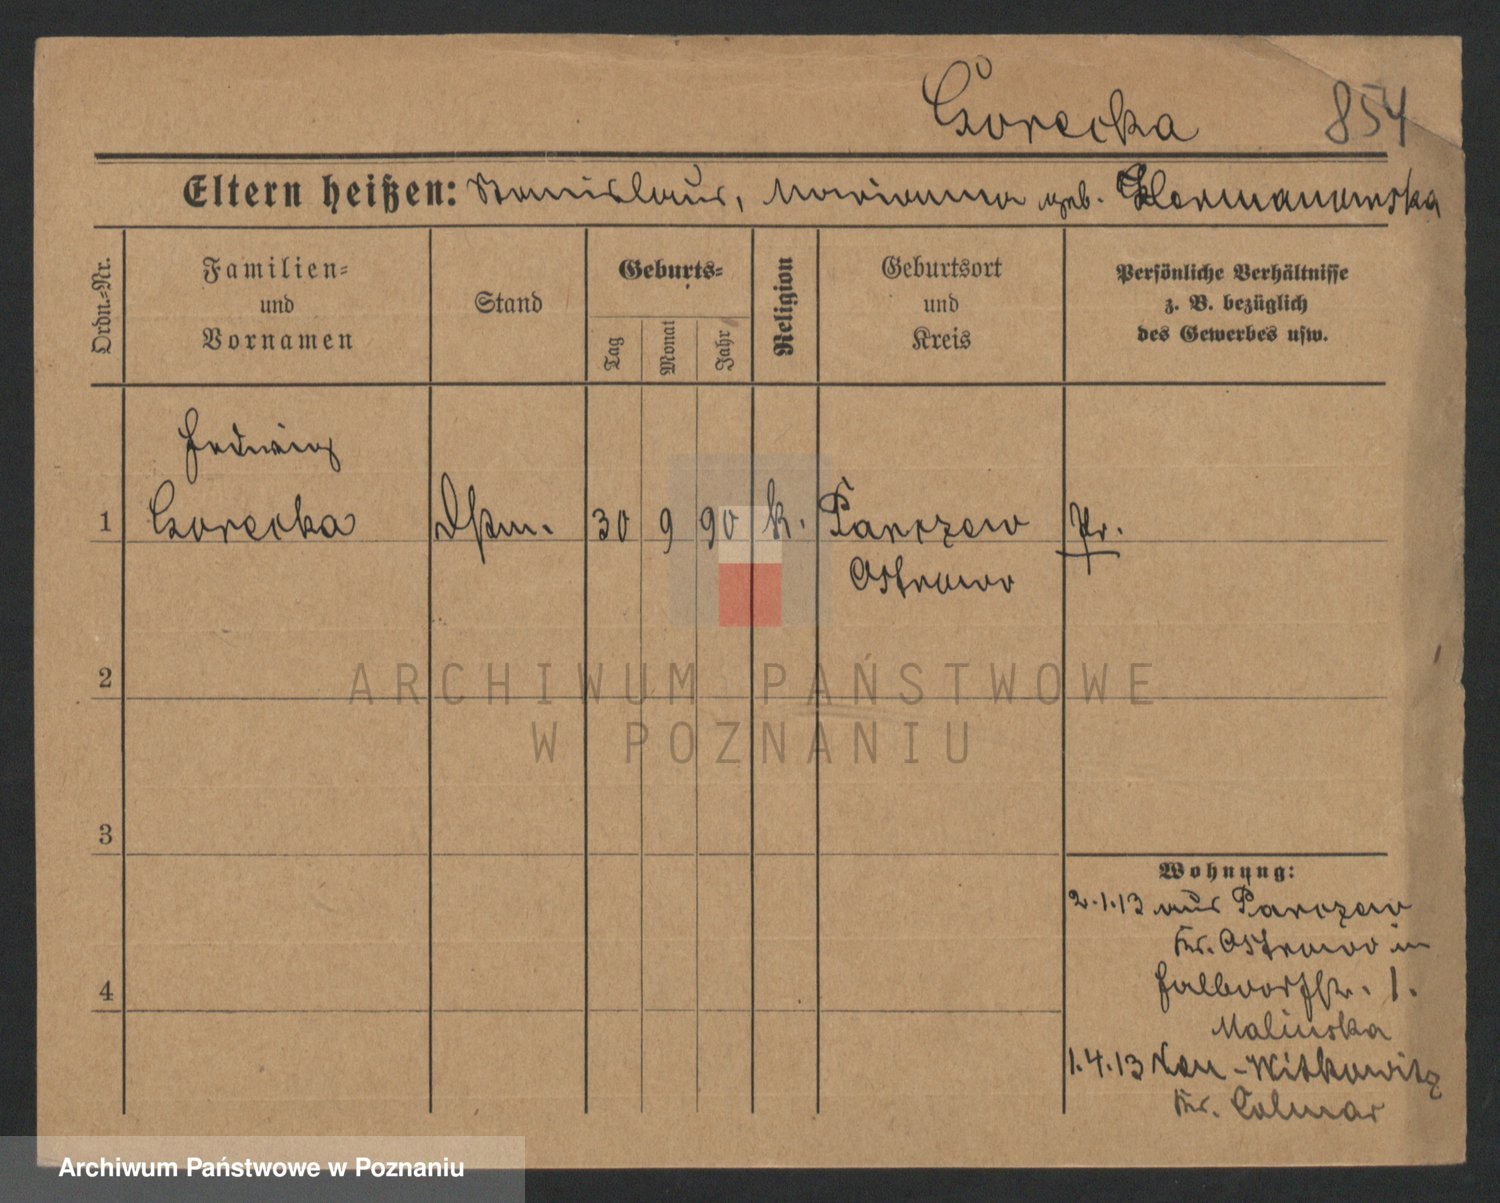 Górecka 854
Eltern heißen: Stanislaus, Marianna geb. Hermanowska
Ordn.-Nr.
Familien-
und
Vornamen
Stand
Geburts-
Tag
Monat
Jahr
Religion
Geburtsort
und
Kreis
Persönliche Verhältnisse
z. B. bezüglich
des Gewerbes usw.
Hedwig
1 Gorecka Dstm. 30 9 90 k. Parczew Pr.
Ostrowo
2
ARCHIWUM PAŃSTWOWE
W POZNANIU
3
Wohnung:
2.1.13 aus Parczew
Kr. Ostrowo in
Halbdorfstr. 1.
4
Malinska
1.4.13 Neu-Witkowitz
Kr. Colmar
Archiwum Państwowe w Poznaniu